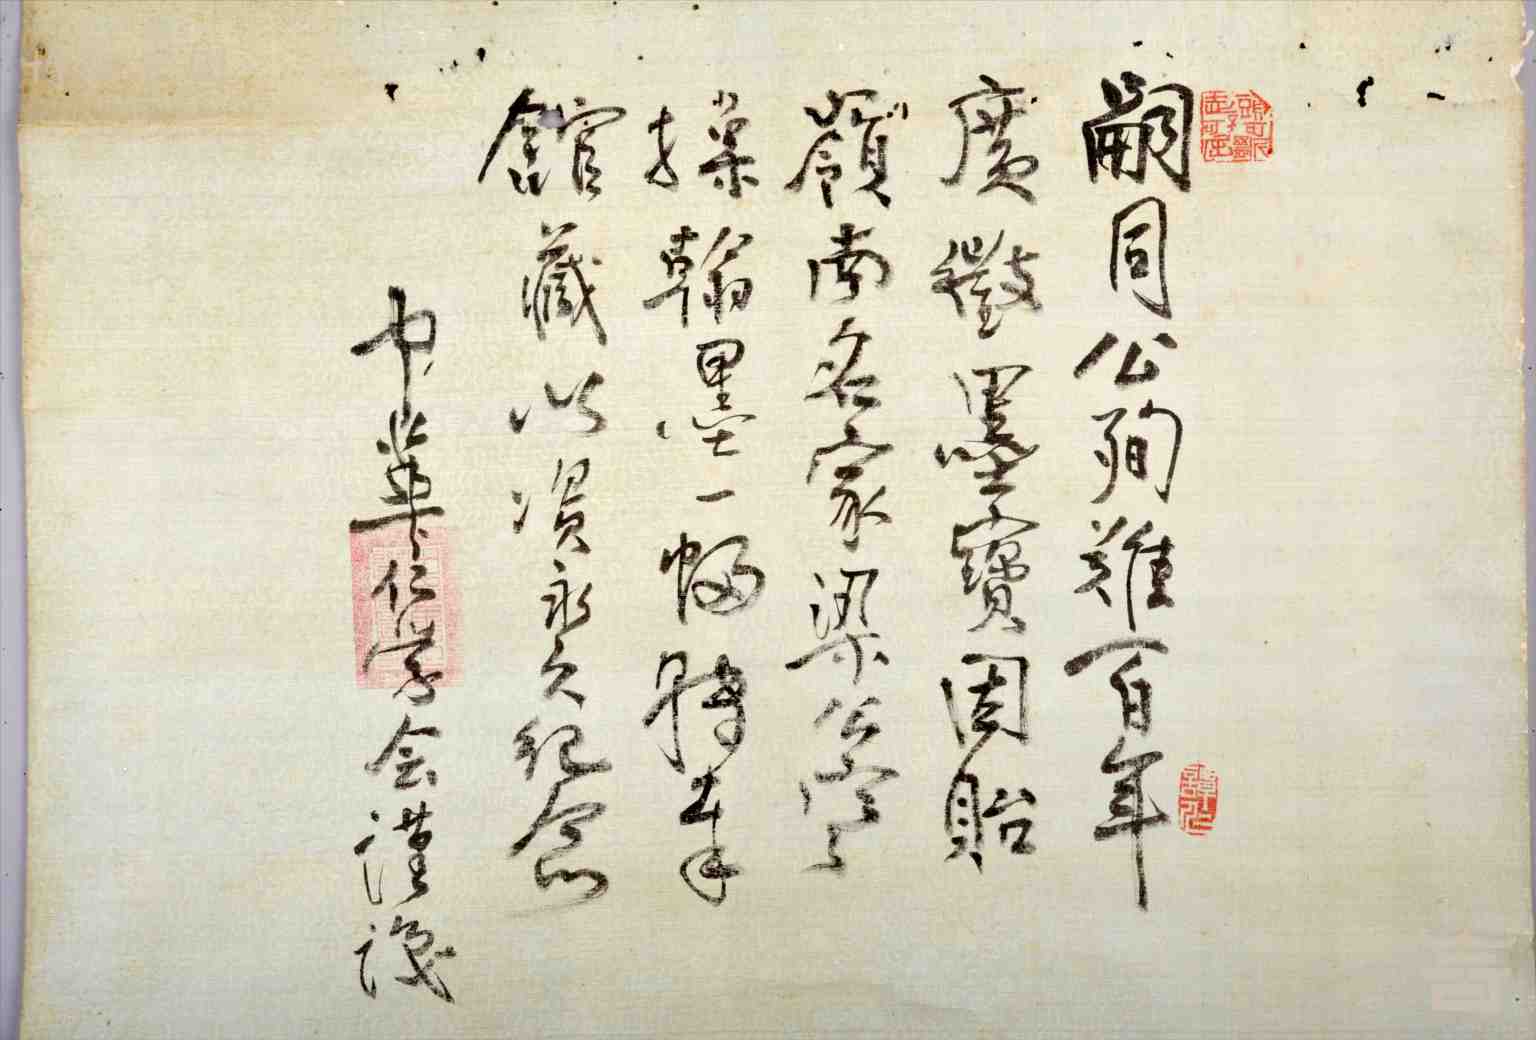 嗣同公殉難百年
廣徵墨寶因貽
嶺南名家梁公
操翰墨一幅奉
館藏以資永久紀念
中華仁学会謹識